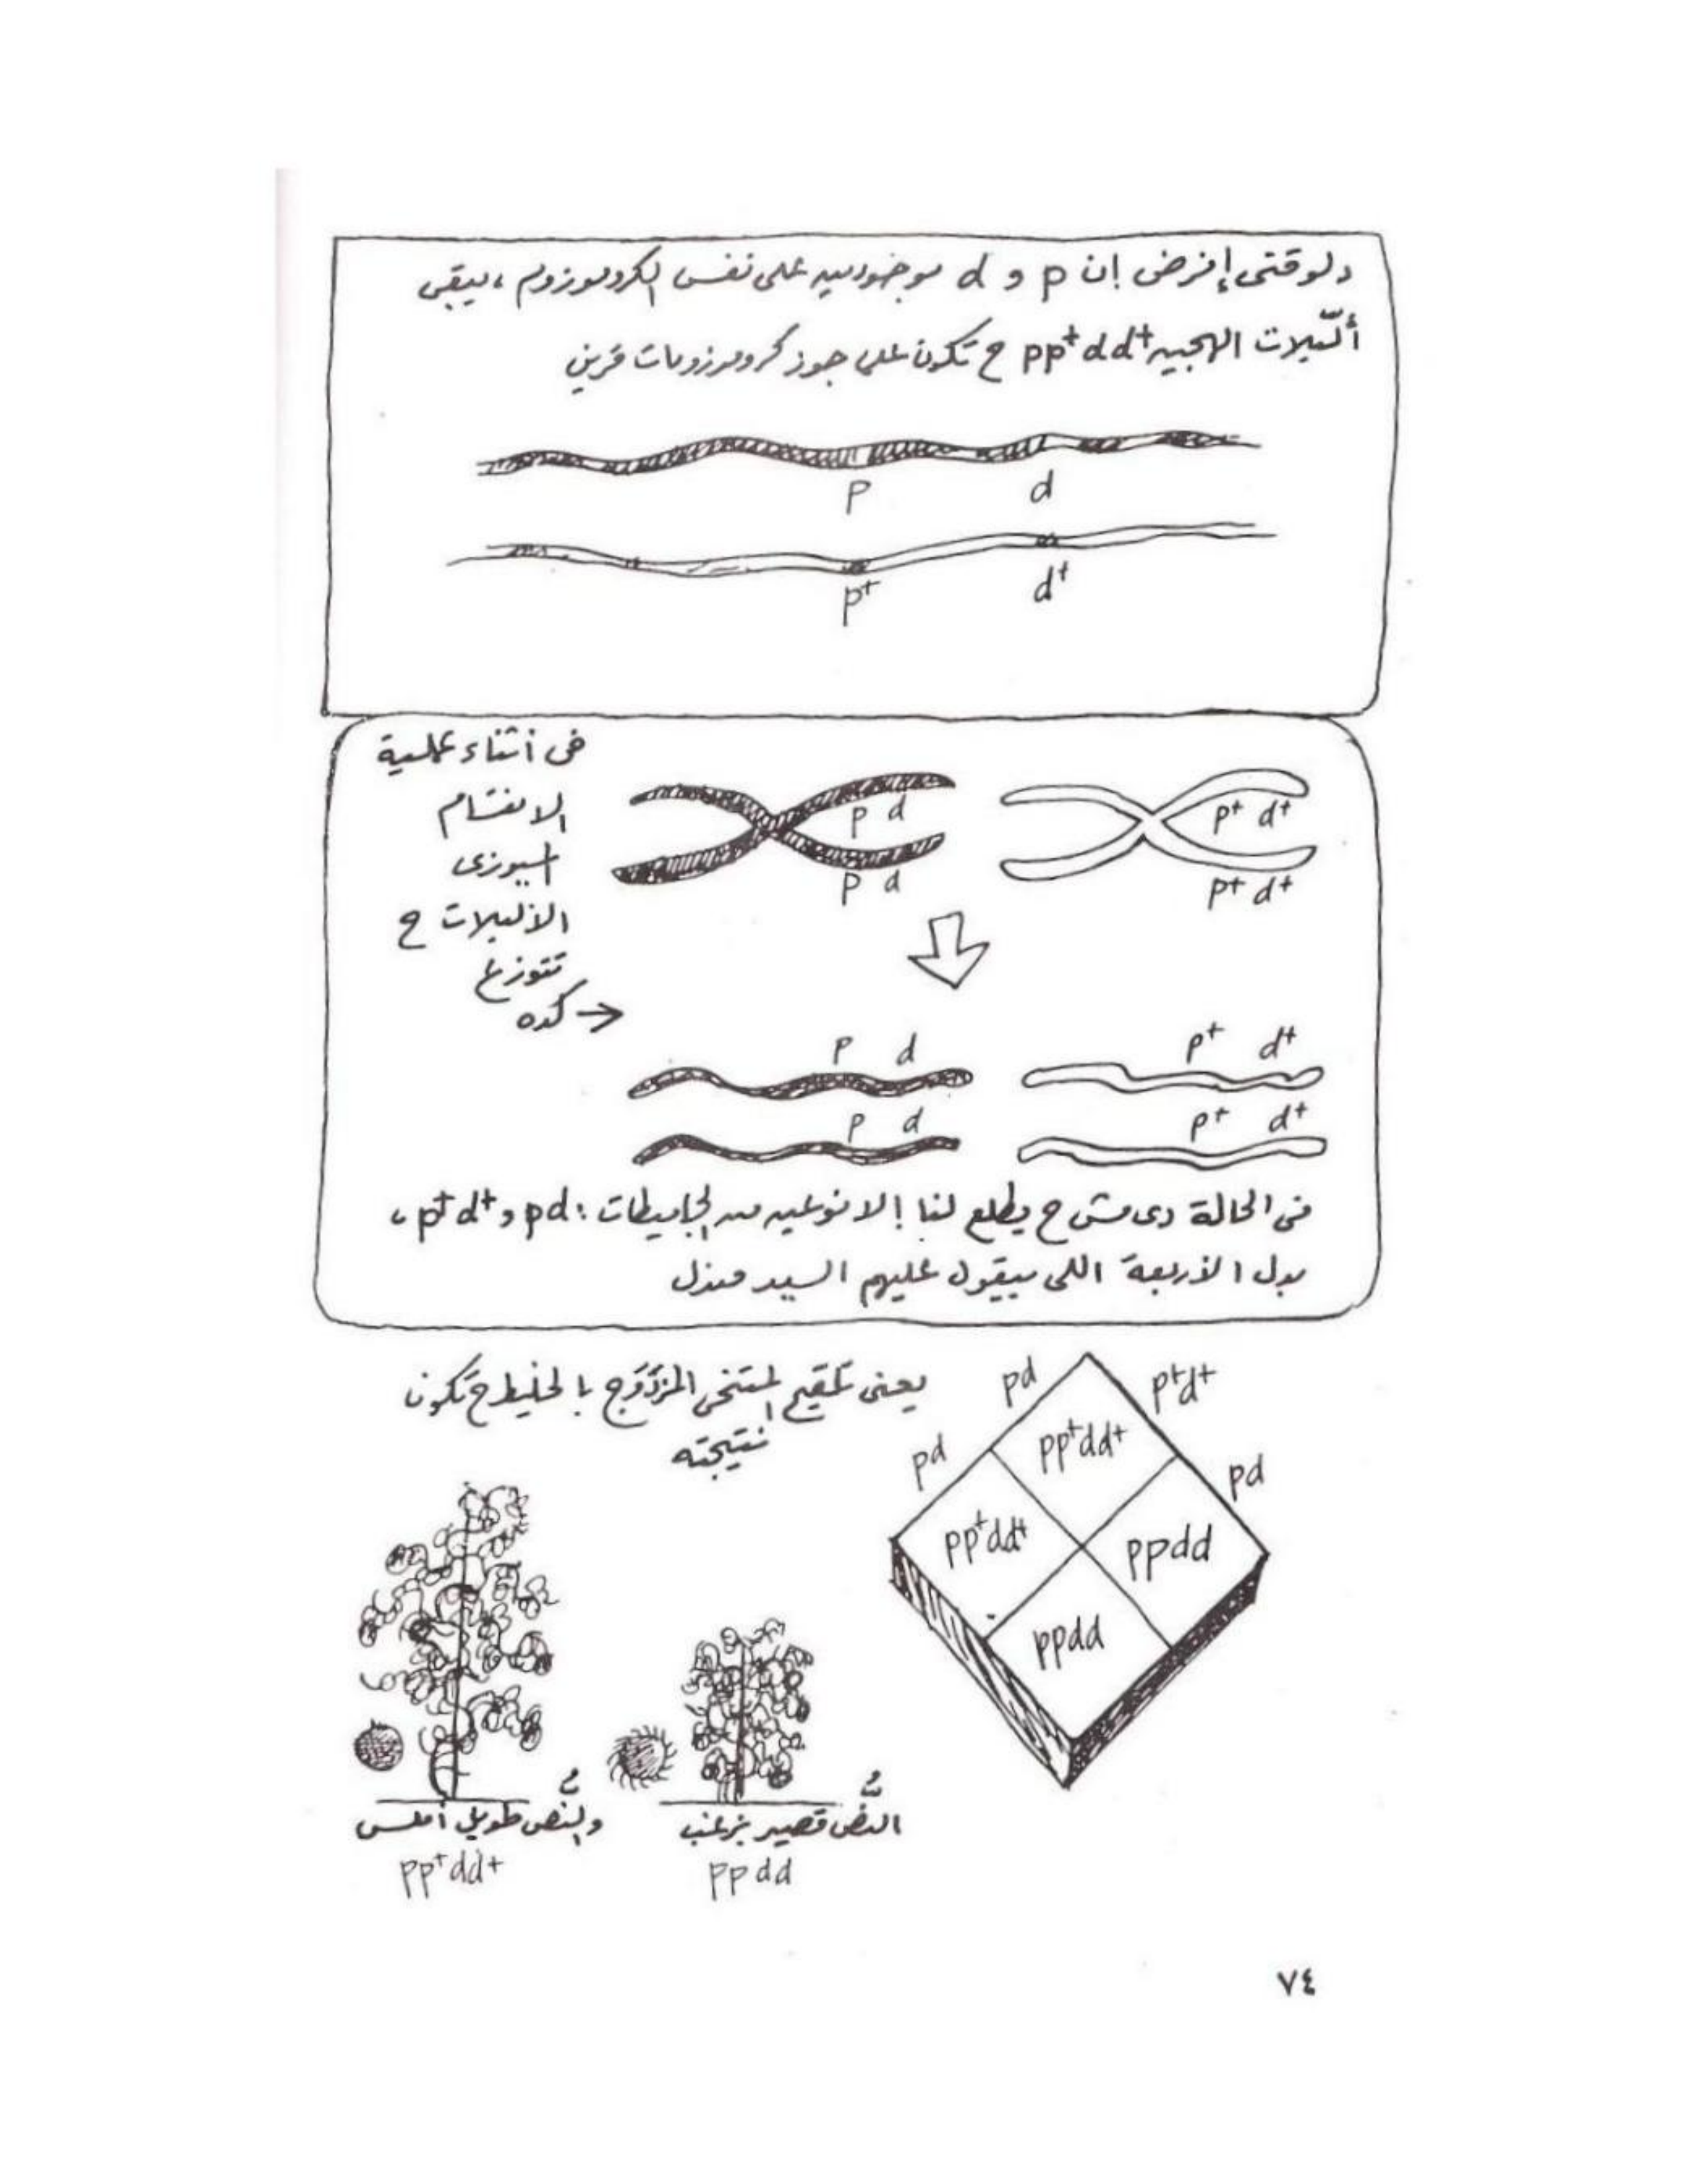 دلوقتى إفرض إن p و d موجودين على نفس الكروموزوم، يبقى
أَلّيلات الهجين pp⁺dd⁺ ح تكون على جوز كروموزومات قرين
p d
p⁺ d⁺
فى أثناء عملية
الانقسام
الميوزى
الأليلات ح
تتوزع
كده →
p d
p d
p⁺ d⁺
p⁺ d⁺
p d
p d
p⁺ d⁺
p⁺ d⁺
فى الحالة دى مش ح يطلع لنا إلا نوعين من الجاميطات: pd و p⁺d⁺،
بدل الأربعة اللى بيقول عليهم السيد مندل
يعنى تلقيح المتنحى المزدوج بالخليط ح تكون
نتيجته
pd
p⁺d⁺
pd
pd
pp⁺dd⁺
pp⁺dd⁺
ppdd
ppdd
النُّص قصير بزغب
ppdd
والنُّص طويل أملس
pp⁺dd⁺
٧٤